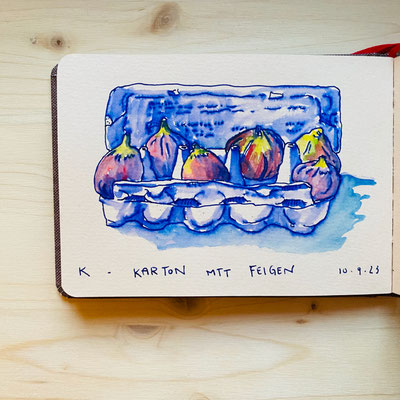 K - KARTON MIT FEIGEN 10.9.23